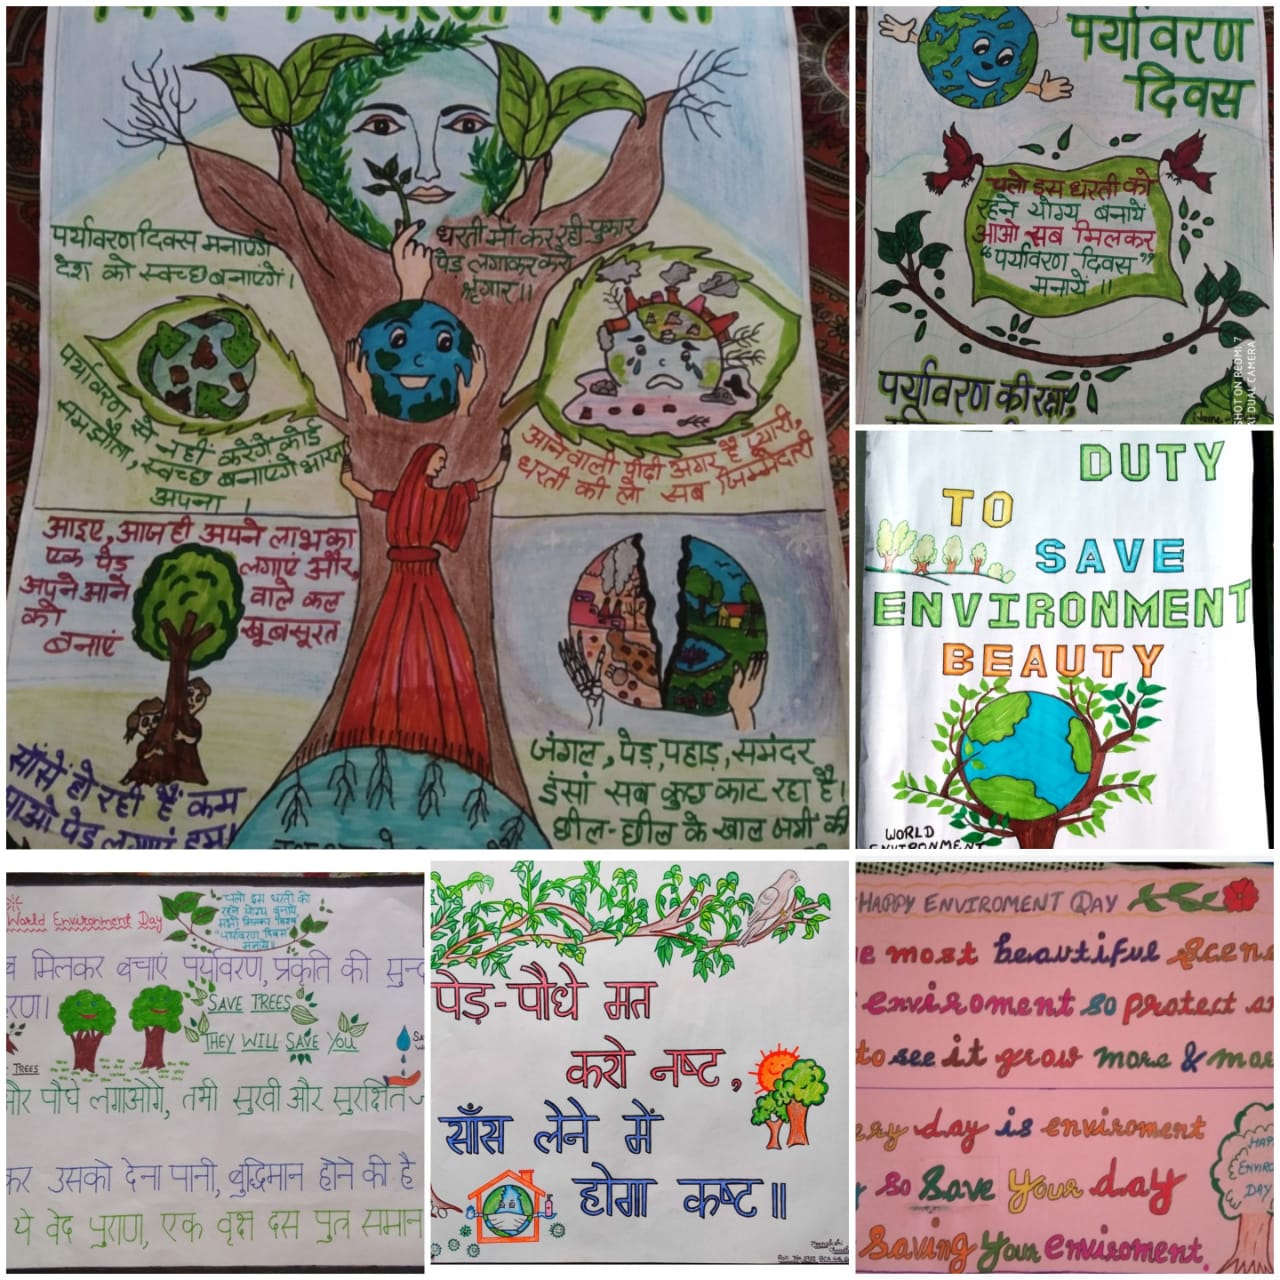 विश्व पर्यावरण दिवस
पर्यावरण दिवस मनाएगे
देश को स्वच्छ बनाएगे।
धरती माँ कर रही पुकार
पेड़ लगाकर करो
श्रृंगार।।
पर्यावरण से नही करेगें कोई
समझौता, स्वच्छ बनाएगे भारत
अपना ।
आने वाली पीढ़ी अगर है प्यारी,
धरती की लो सब जिम्मेदारी
आइए, आज ही अपने लाभ का
एक पेड़ लगाएं और,
अपने आने वाले कल
की खूबसूरत
बनाएं
साँसें हो रही हैं कम
आओ पेड़ लगाएं हम।
जंगल, पेड़, पहाड़, समंदर
इंसां सब कुछ काट रहा है।
छील-छील के खाल जमीं की
पर्यावरण
दिवस
चलो इस धरती को
रहने योग्य बनायें
आओ सब मिलकर
"पर्यावरण दिवस"
मनायें ।।
पर्यावरण की रक्षा,
SHOT ON REDMI 7
AI DUAL CAMERA
DUTY
TO
SAVE
ENVIRONMENT
BEAUTY
WORLD
ENVIRONMENT
World Environment Day
चलो इस धरती को
रहने योग्य बनायें
सभी मिलकर विश्व
"पर्यावरण दिवस"
मनायें॥
मिलकर बचाएं पर्यावरण, प्रकृति की सुन्द
रण।
SAVE TREES
THEY WILL SAVE YOU
TREES
और पौधे लगाओगे, तभी सुखी और सुरक्षित
कर उसको देना पानी, बुद्धिमान होने की है
ये वेद पुराण, एक वृक्ष दस पुत्र समान
पेड़-पौधे मत
करो नष्ट,
साँस लेने में
होगा कष्ट॥
HAPPY ENVIROMENT DAY
e most beautiful Scene
enviroment so protect
to see it grow more & mor
ery day is enviroment
so Save Your day
Saving Your enviroment.
HAPPY
ENVIRO
DAY